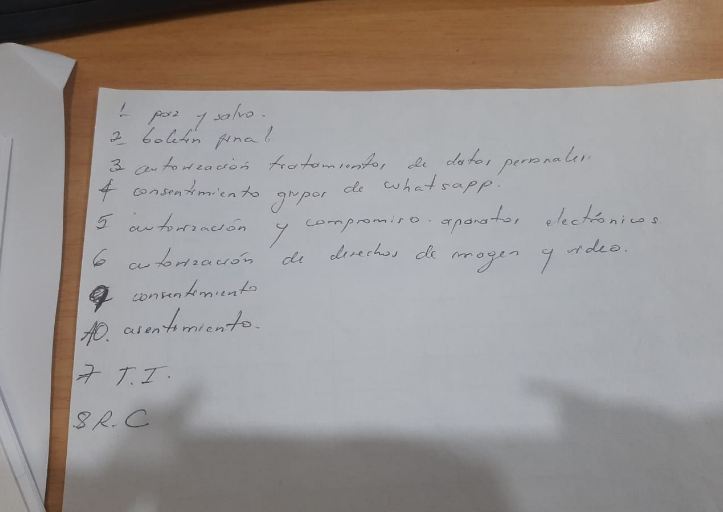 1 paz y salvo.
2 boletin final
3 autorización tratamientos de datos personales.
4 consentimiento grupos de whatsapp.
5 autorización y compromiso. aparatos electrónicos
6 autorización de derechos de imagen y video.
9 consentimiento
10. asentimiento.
7 T.I.
8 R.C